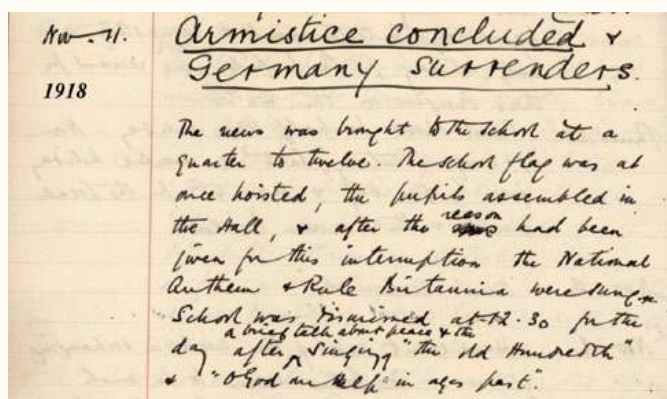 Nov. 11.
1918
Armistice concluded &
Germany surrenders.
The news was brought to the school at a
quarter to twelve. The school flag was at
once hoisted, the pupils assembled in
the Hall, & after the reason had been
given for this interruption the National
Anthem & Rule Britannia were sung.
School was dismissed at 12.30 for the
a brief talk about peace & the
day after singing "the old Hundredth"
& "O God our help in ages past".